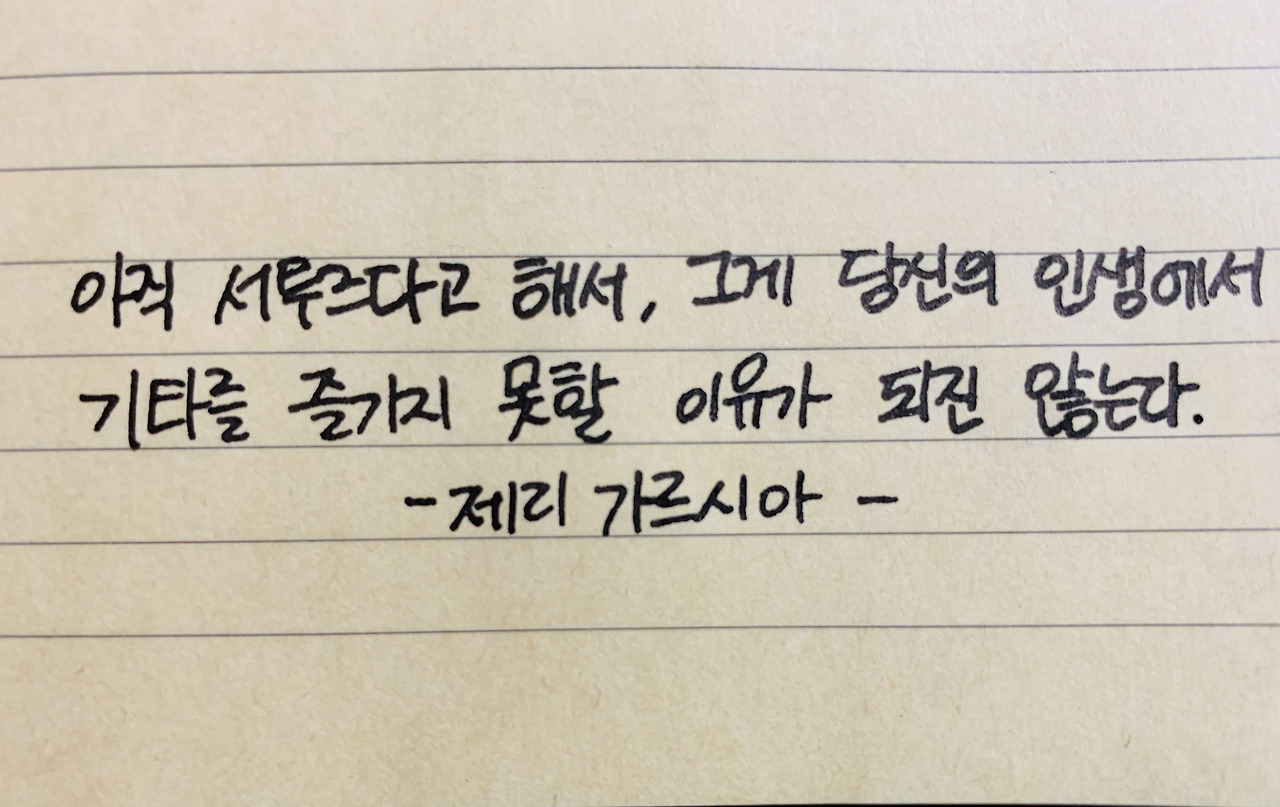 아직 서투르다고 해서, 그게 당신의 인생에서
기타를 즐기지 못할 이유가 되진 않는다.
- 제리 가르시아 -